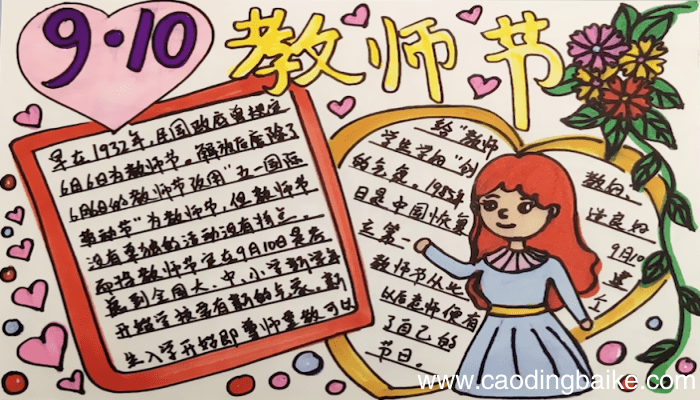 9·10 教师节
早在1932年,民国政府曾规定
6月6日为教师节。解放后废除了
6月6日的教师节改用"五一国际
劳动节"为教师节,但教师节
没有单独的活动没有特点。
而将教师节定在9月10日是考
虑到全国大、中、小学新学年
开始学校要有新的气象。新
生入学开始即尊师重教可以
给"教师 教
学生学 "创 造良好
的气氛。1985年 9月10
日是中国恢复 建
立第一 个
教师节从此
以后老师便有
了自己的
节日。
www.caodingbaike.com